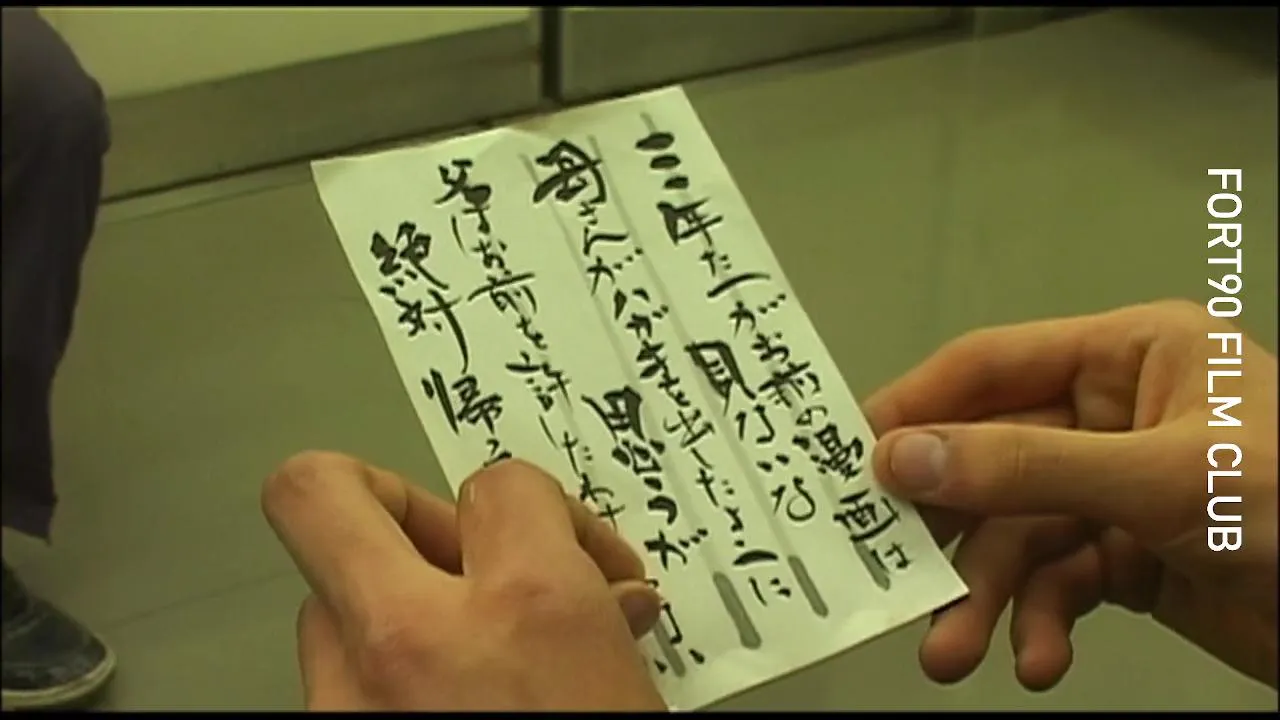 三年たつがお前の漫画は
見ないな
母さんがハガキを出したように
思うが
父はお前を許したわけ
絶対帰
FORT90 FILM CLUB